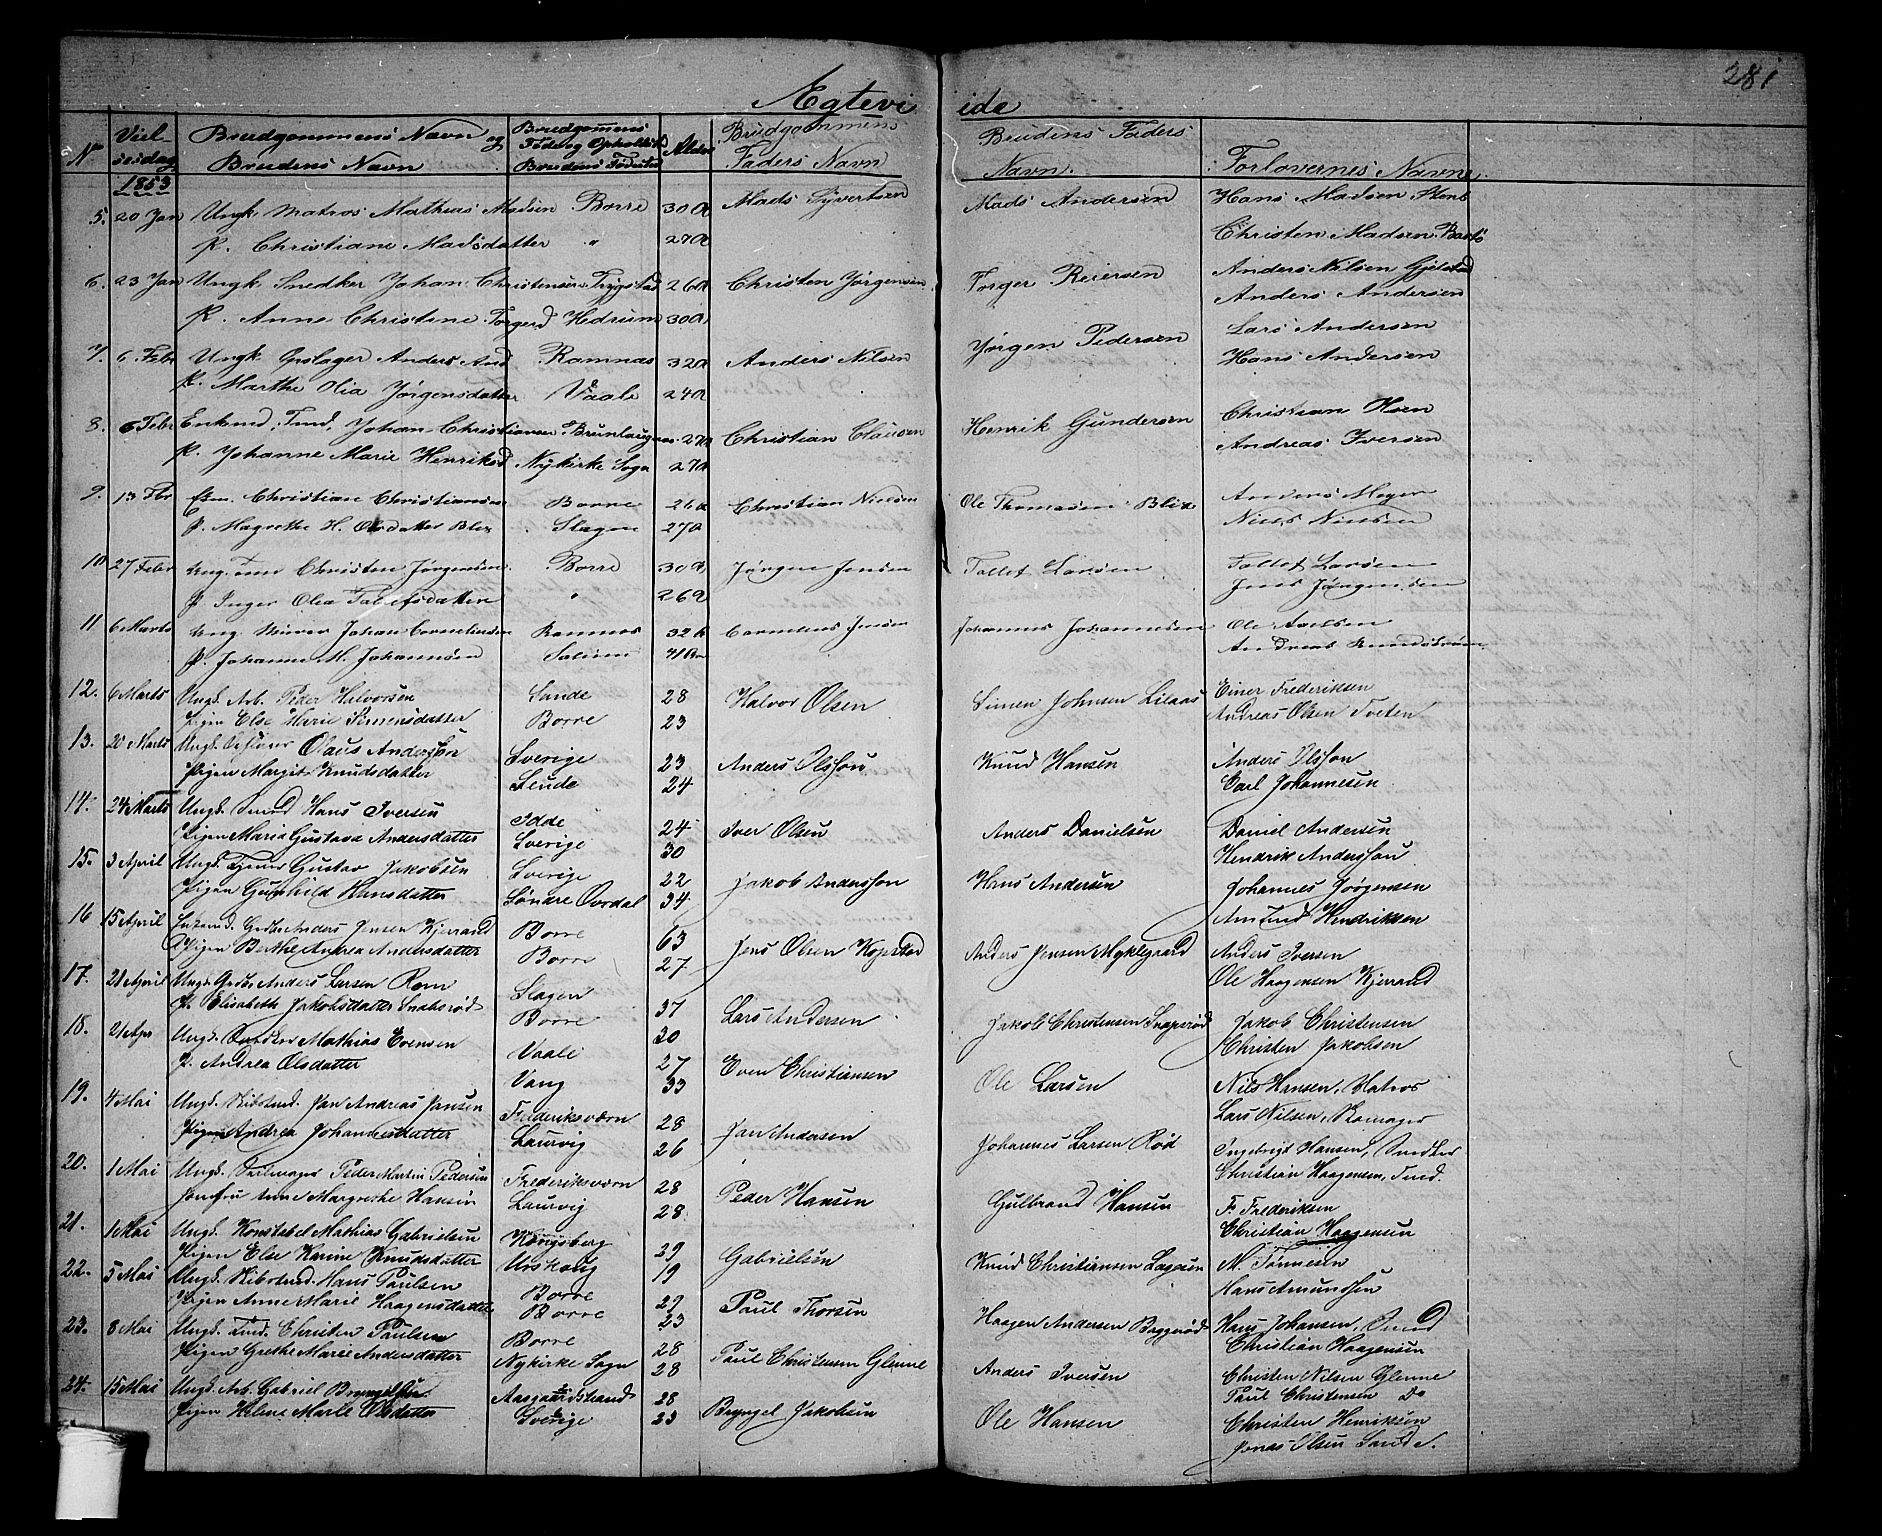 281
Ægtevi ide
No Viel sesdag Brudgommens Navn og Brudens Navn Brudgommens Føde og Opholdst Brudens Fødested Alder Brudgommens Faders Navn Brudens Faders Navn. Forlovernes Navne.
1853
5. 20 Jan Ungk. Matros Mathias Madsen Borre 30 a Mads Syvertsen Mads Andersen Hans Madsen
P. Christiane Madsdatter " 27 a Christen Madsen
6. 23 Jan Ungk Snedker Johan Christensen 26 a Christen Jørgensen Torger Reiersen Anders Nilsen Gjelstad
P. Anne Christine Torgerd Hedrum 30 a Anders Andersen
7. 6 Febr Ungk Opslager Anders And Ramnas 32 a Anders Nilsen Jørgen Pedersen Lars Andersen
P. Marthe Olia Jørgensdatter Vaale 24 a Hans Andersen
8. 6 Febr Enkmd. Tmd. Johan Christiansen Brunlaugnas 27 a Christian Clausen Henrik Gundersen Christian Horn
P. Johanne Marie Henriksd Nykirke Sogn 27 a Andreas Iversen
9. 13 Fbr Christian Christiansen Borre 26 a Christian Nielsen Ole Thomasen Blix Anders Meyer
P. Magrethe H. Olsdatter Blix Slagen 27 a Niels Nielsen
10 27 Febr Ung. Christen Jørgensen Borre 30 a Jørgen Jensen Tollef Larsen Tollef Larsen
P Inger Olea Tollefsdatter " 26 a Jens Jørgensen
11 6 Marts Ung. Murer Johan Corneliusen Ramnes 32 a Cornelius Jensen Johannes Johannesen Ole Axelsen
P. Johanne M. Johannsen 41 a Andreas
12. 6 Marts Ungk. Arb. Peder Halvorsen Sande 28 Halvor Olsen Simen Johnsen Lilaas Einer Frederiksen
Pigen Else Marie Simensdatter Borre 23 Andreas Olsen Tveten
13. 20 Marts Ungk. Olaus Andersson Sverige 23 Anders Olsson Knud Hansen Anders Olsson
Pigen Margit Knudsdatter 24 Carl Johannesen
14. 24 Marts Ungk. Smed Hans Iversen Idde 24 Iver Olsen Anders Danielsen Daniel Andersen
Pigen Maria Gustava Andersdatter Sverige 30 Hendrik Andersson
15. 3 April Ungk. Tjener Gustav Jakobsen Sverige 22 Jakob Andersson Hans Andersen Johannes Jørgensen
Pigen Gunhild Hansdatter Søndre Ovrdal 34 Amund Hendriksen
16 15 April Enkemd. Grdbr Anders Jensen Kjerrand Borre 63 Jens Olsen Kopstad Anders Jensen Myklegaard Anders Iversen
Pigen Berthe Andrea Andersdatter Borre 27 Ole Haagensen Kjerrand
17. 21 April Ungk. Grdbr Anders Larsen Rom Slagen 37 Lars Andersen Jakob Christensen Snaperød Jakob Christensen
P. Elisabeth Jakobsdatter Snaberød Borre 30 Christen Jakobsen
18. 21 Apr Ungk. Snedker Mathias Evensen Vaale 27 Even Christiansen Ole Larsen Nils Hansen, Matros
P. Andrea Olsdatter Vang 33 Lars Nilsen, Skomager
19. 4 Mai Ungk. Skibstmd. Jan Andreas Jansen Frederiksværn 28 Jan Andersen Johannes Larsen Rød Ingebrigt Hansen, Snedker
Pigen Andrea Johannesdatter Laurvig 26 Christian Haagensen, Tmd.
20. 1 Mai Ungk. Seilmager Peder Martin Pedersen Frederiksværn 28 Peder Hansen Gulbrand Hansen F. Frederiksen
Jomfru Anne Margrethe Hansen Laurvig 28. Christian Haagensen
21. 1 Mai Ungk. Konstabel Mathias Gabrielsen Kongsberg 29 Gabrielsen Knud Christiansen Lagesen M. Tønnesen
Pigen Else Karine Knudsdatter Urskoug 19 Hans Amundsen
22. 5 Mai Ungk. Skibstmd. Hans Paulsen Borre 29 Paul Thorsen Haagen Andersen Baggerød Hans Johansen, Smed
Pigen Anne Marie Haagensdatter Borre 23 Christian Haagensen
23. 8 Mai Ungk. Tmd. Christen Paulsen Borre 28 Paul Christensen Glenne Anders Iversen Christen Nilsen Glenne
Pigen Grethe Marie Andersdatter Nykirke Sogn 28 Paul Christensen Do
24. 15 Mai Ungk. Arb. Gabriel Bryngelsen Aasgaardstrand 28 Bryngel Jakobsen Ole Hansen Christen Henriksen
Pigen Helene Marie Olsdatter Sverige 23 Jonas Olsen